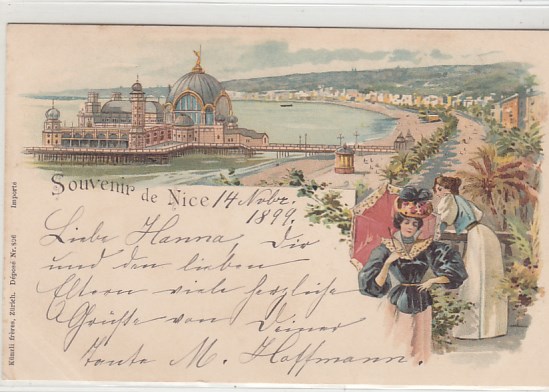 Souvenir de Nice 14 Novbr.
1899.
Liebe Hanna, Dir
und den lieben
Eltern viele herzliche
Grüsse von Deiner
tante M. Hoffmann.
Künzli frères, Zürich. Déposé Nr. 936 Importe